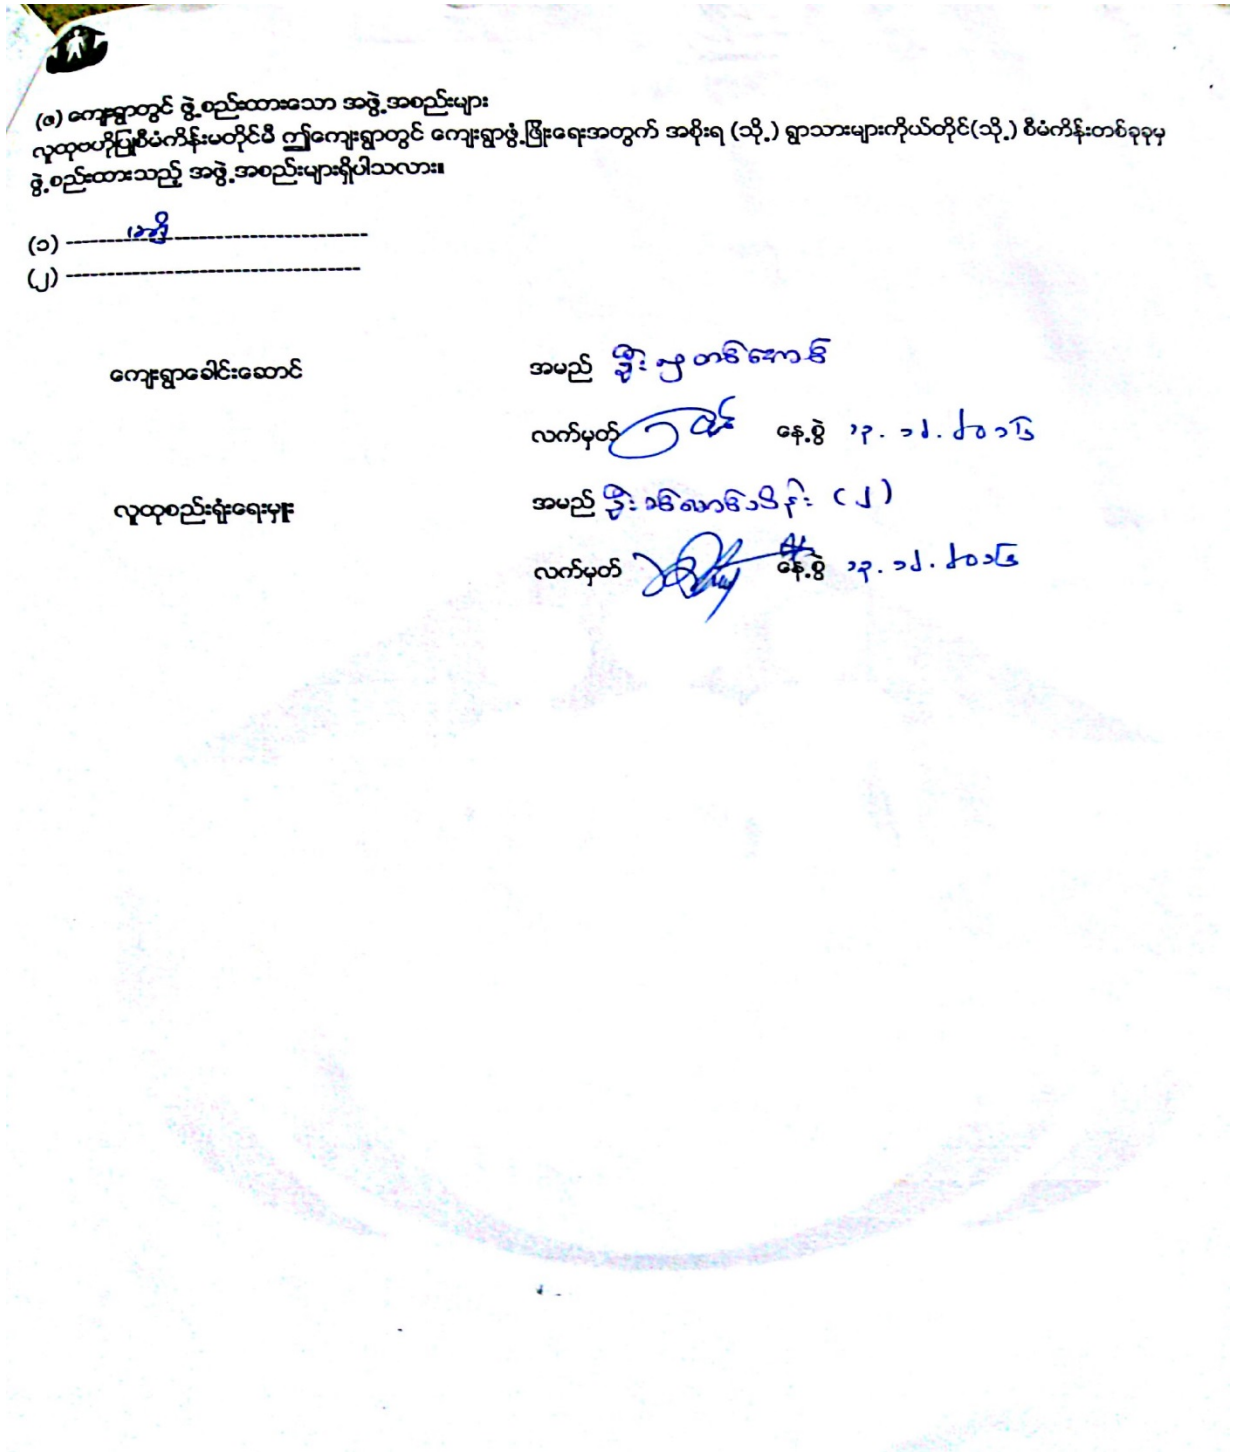 (ဇ) ကျေးရွာတွင် ဖွဲ့စည်းထားသော အဖွဲ့အစည်းများ
လူထုဗဟိုပြုစီမံကိန်းမတိုင်မီ ဤကျေးရွာတွင် ကျေးရွာဖွံ့ဖြိုးရေးအတွက် အစိုးရ (သို့) ရွာသားများကိုယ်တိုင်(သို့) စီမံကိန်းတစ်ခုခုမှ
ဖွဲ့စည်းထားသည့် အဖွဲ့အစည်းများရှိပါသလား။
(၁) ----------------------------------------
(၂) ----------------------------------------
ကျေးရွာခေါင်းဆောင် အမည် ဦး
လက်မှတ် နေ့စွဲ ၁၃. ၁၂. ၂၀၁၆
လူထုစည်းရုံးရေးမှူး အမည် ဦး (၂)
လက်မှတ် နေ့စွဲ ၁၃. ၁၂. ၂၀၁၆